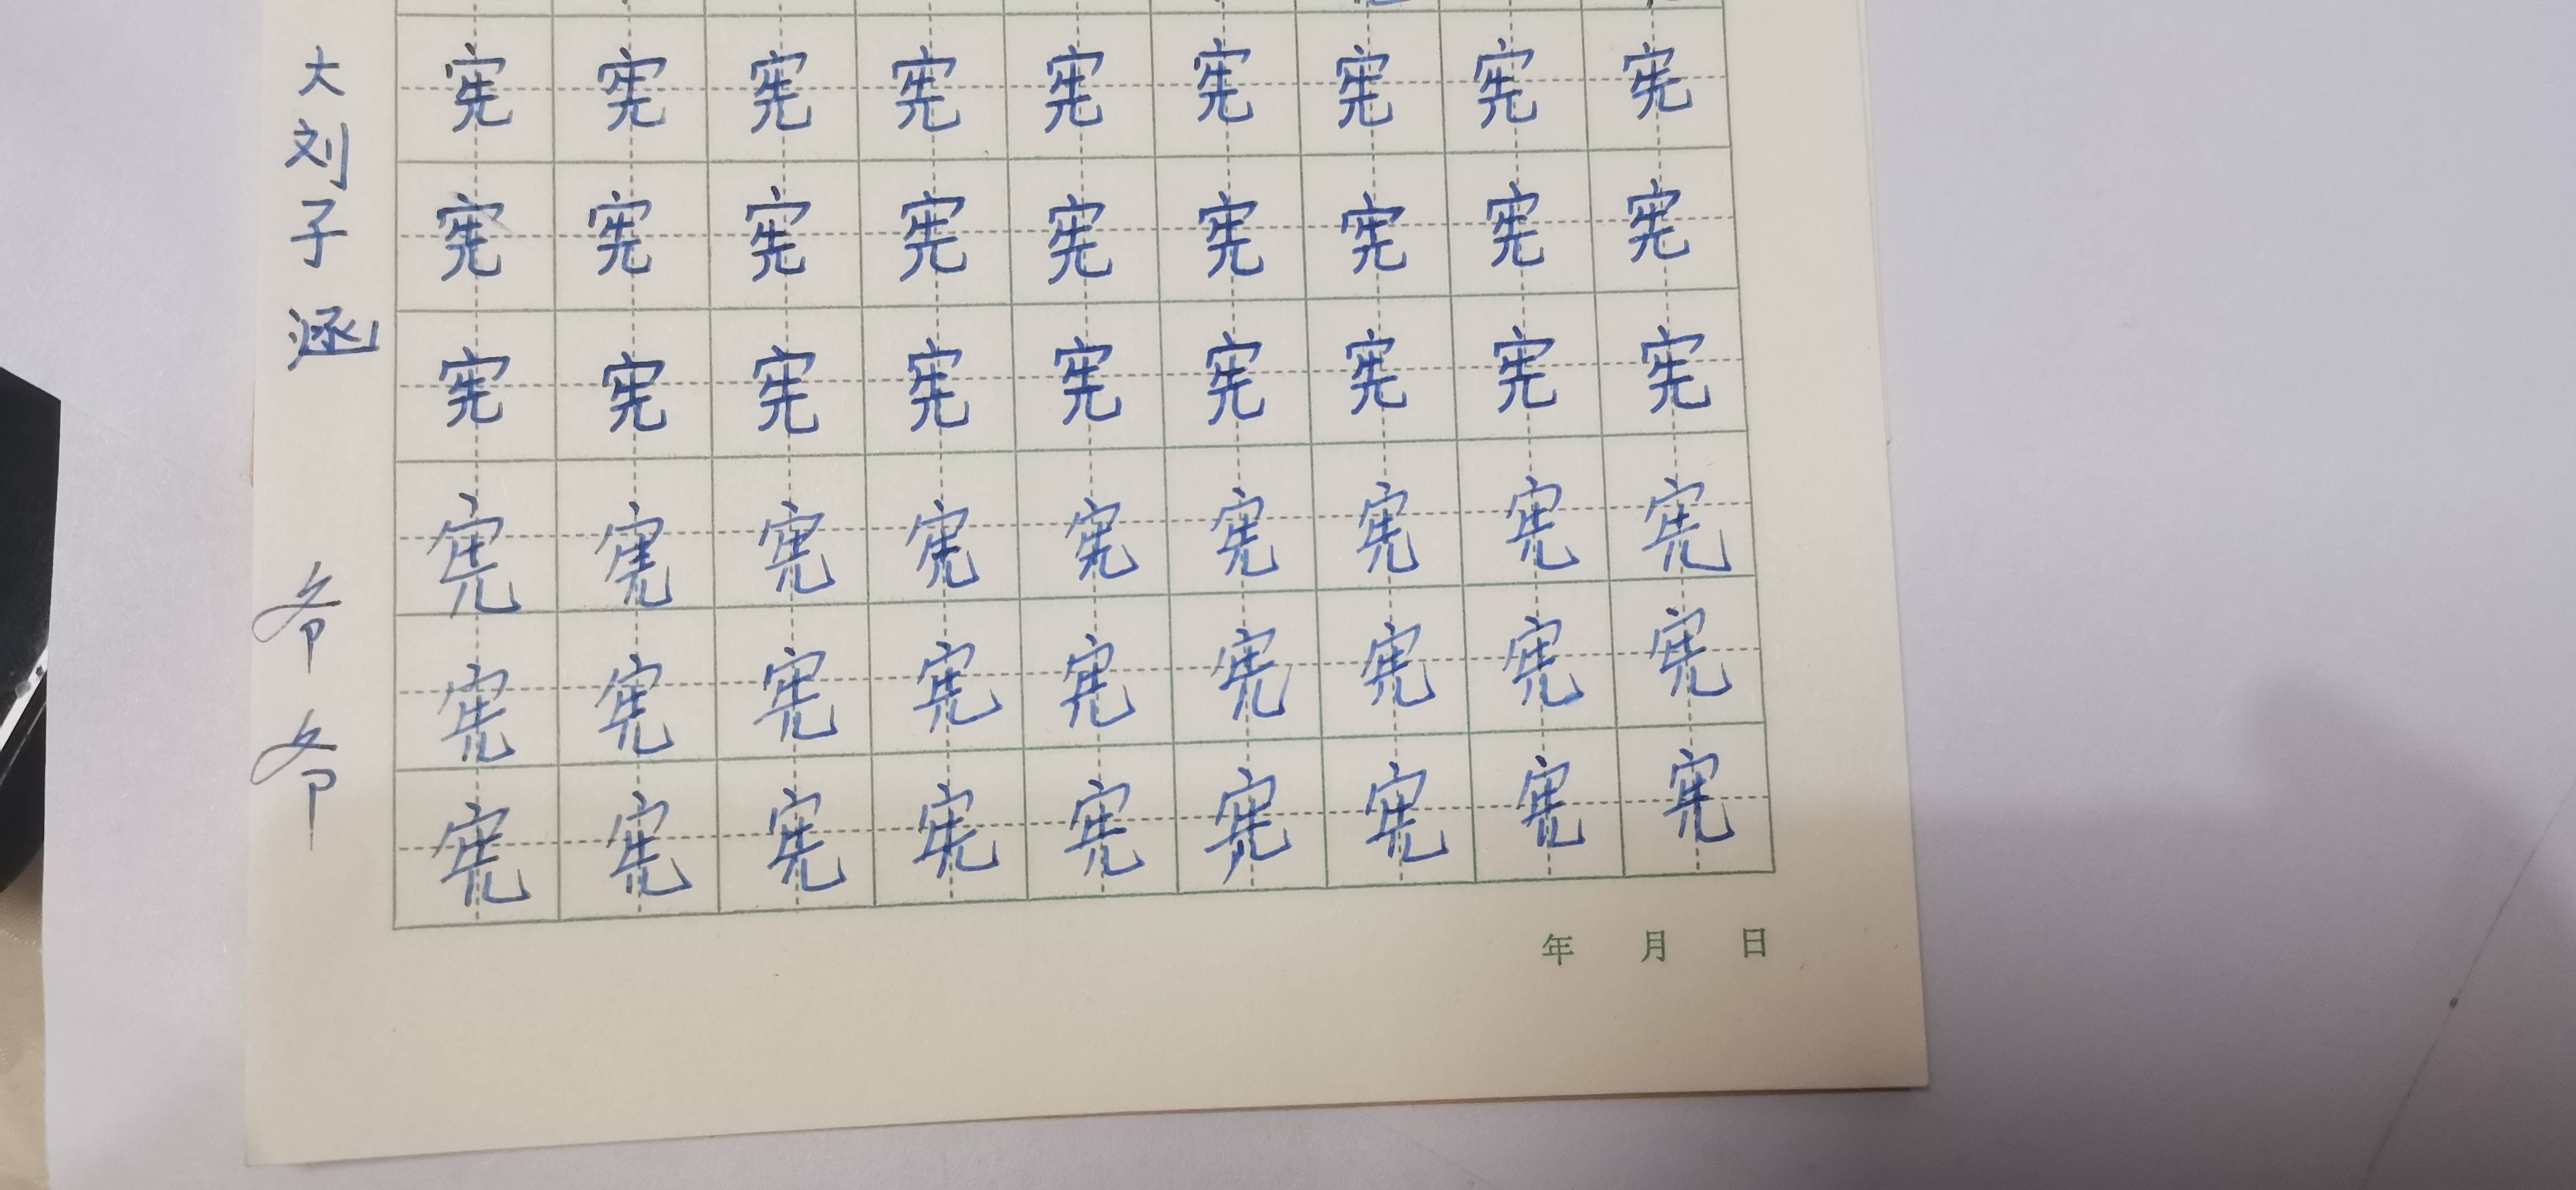 大刘子涵
爷爷
宪宪宪宪宪宪宪宪宪
宪宪宪宪宪宪宪宪宪
宪宪宪宪宪宪宪宪宪
宪宪宪宪宪宪宪宪宪
宪宪宪宪宪宪宪宪宪
宪宪宪宪宪宪宪宪宪
年 月 日